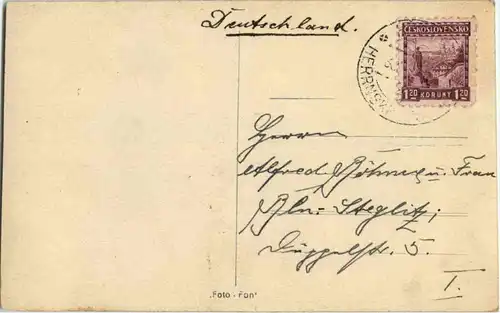 Deutschland.
ČESKOSLOVENSKO
1.20 KORUNY 1.20
Herrn
Alfred Böhme u. Frau
Bln-Steglitz,
Düppelstr. 5.
I.
„Foto-Fon"